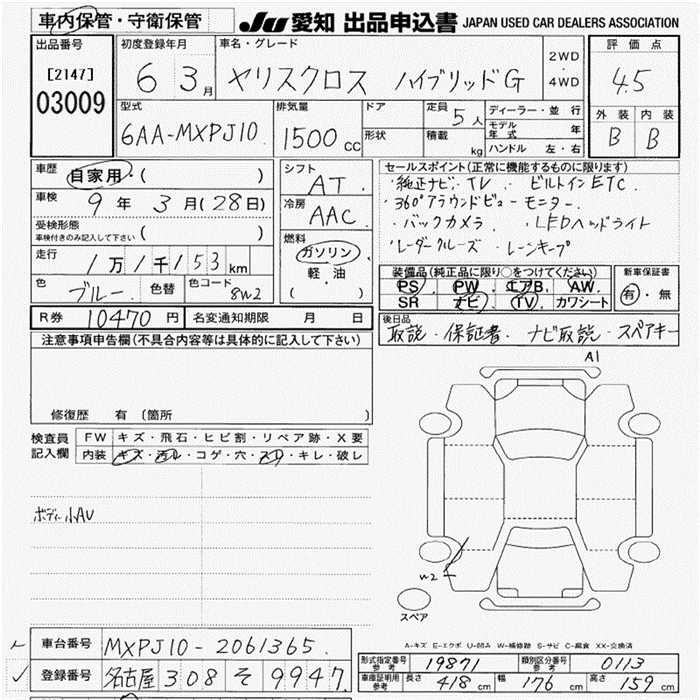 車内保管・守衛保管
JU 愛知 出品申込書 JAPAN USED CAR DEALERS ASSOCIATION
出品番号
[2147]
03009
初度登録年月
6 3月
車名・グレード
ヤリスクロス ハイブリッドG
2WD
・
4WD
評価点
4.5
外装 内装
B B
型式
6AA-MXPJ10
排気量
1500cc
ドア
形状
定員 5人
積載 kg
ディーラー・並行
モデル年式 年
ハンドル 左・右
車歴 自家用・( )
車検 9年 3月(28日)
受検形態
車検付きのみ記入して下さい ( )
走行 1万1千153km
色 ブルー 色替 色コード 8W2
シフト
AT
冷房
AAC
燃料
ガソリン
軽・油
( )
セールスポイント(正常に機能するものに限ります)
・純正ナビ・TV ・ビルトインETC
・360°アラウンドビューモニター
・バックカメラ ・LEDヘッドライト
・レーダークルーズ ・レーンキープ
装備品(純正品に限り○をつけてください)
PS PW エアB AW
SR ナビ TV カワシート
新車保証書
有・無
R券 10470円 名変通知期限 月 日
後日品
取説・保証書・ナビ取説・スペアキー
注意事項申告欄(不具合内容等は具体的に記入して下さい)
修復歴 有 〔箇所
検査員記入欄
FW キズ・飛石・ヒビ割・リペア跡・X要
内装 キズ・汚レ・コゲ・穴・スリ・キレ・破レ
ボディ小AU
A1
W2
スペア
A-キズ E-エクボ U-凹み W-補修跡 S-サビ C-腐食 XX-交換済
車台番号 MXPJ10-2061365
登録番号 名古屋 308 そ 9947
型式指定番号 参考 19871 類別区分番号 参考 0113
車庫証明用 参考 長さ 418cm 幅 176cm 高さ 159cm